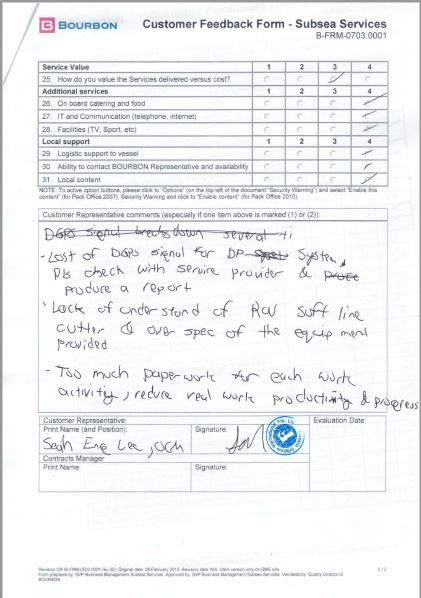 BOURBON
Customer Feedback Form - Subsea Services
B-FRM-0703.0001
Service Value 1 2 3 4
25. How do you value the Services delivered versus cost?
Additional services 1 2 3 4
26. On board catering and food
27. IT and Communication (telephone, internet)
28. Facilities (TV, Sport, etc)
Local support 1 2 3 4
29. Logistic support to vessel
30. Ability to contact BOURBON Representative and availability
31. Local content
NOTE: To active option buttons, please click to "Options" (on the top left of the document "Security Warning") and select "Enable this
content" (for Pack Office 2007). Security Warning and click to "Enable content" (for Pack Office 2010).
Customer Representative comments (especially if one item above is marked (1) or (2)):
DGPS signal breaks down several ti
- Lost of DGPS signal for DP System,
Pls check with service provider &
produce a report
- Lack of understand of ROV soft line
cutter & over spec of the equipment
provided
- Too much paperwork for each work
activity, reduce real work productivity & progress
Customer Representative:
Print Name (and Position): Signature: Evaluation Date:
Contracts Manager
Print Name: Signature:
2 / 2
Form prepared by: SVP Business Management Subsea Services. Approved by: SVP Business Management Subsea Services. Validated by: Quality Director of
BOURBON